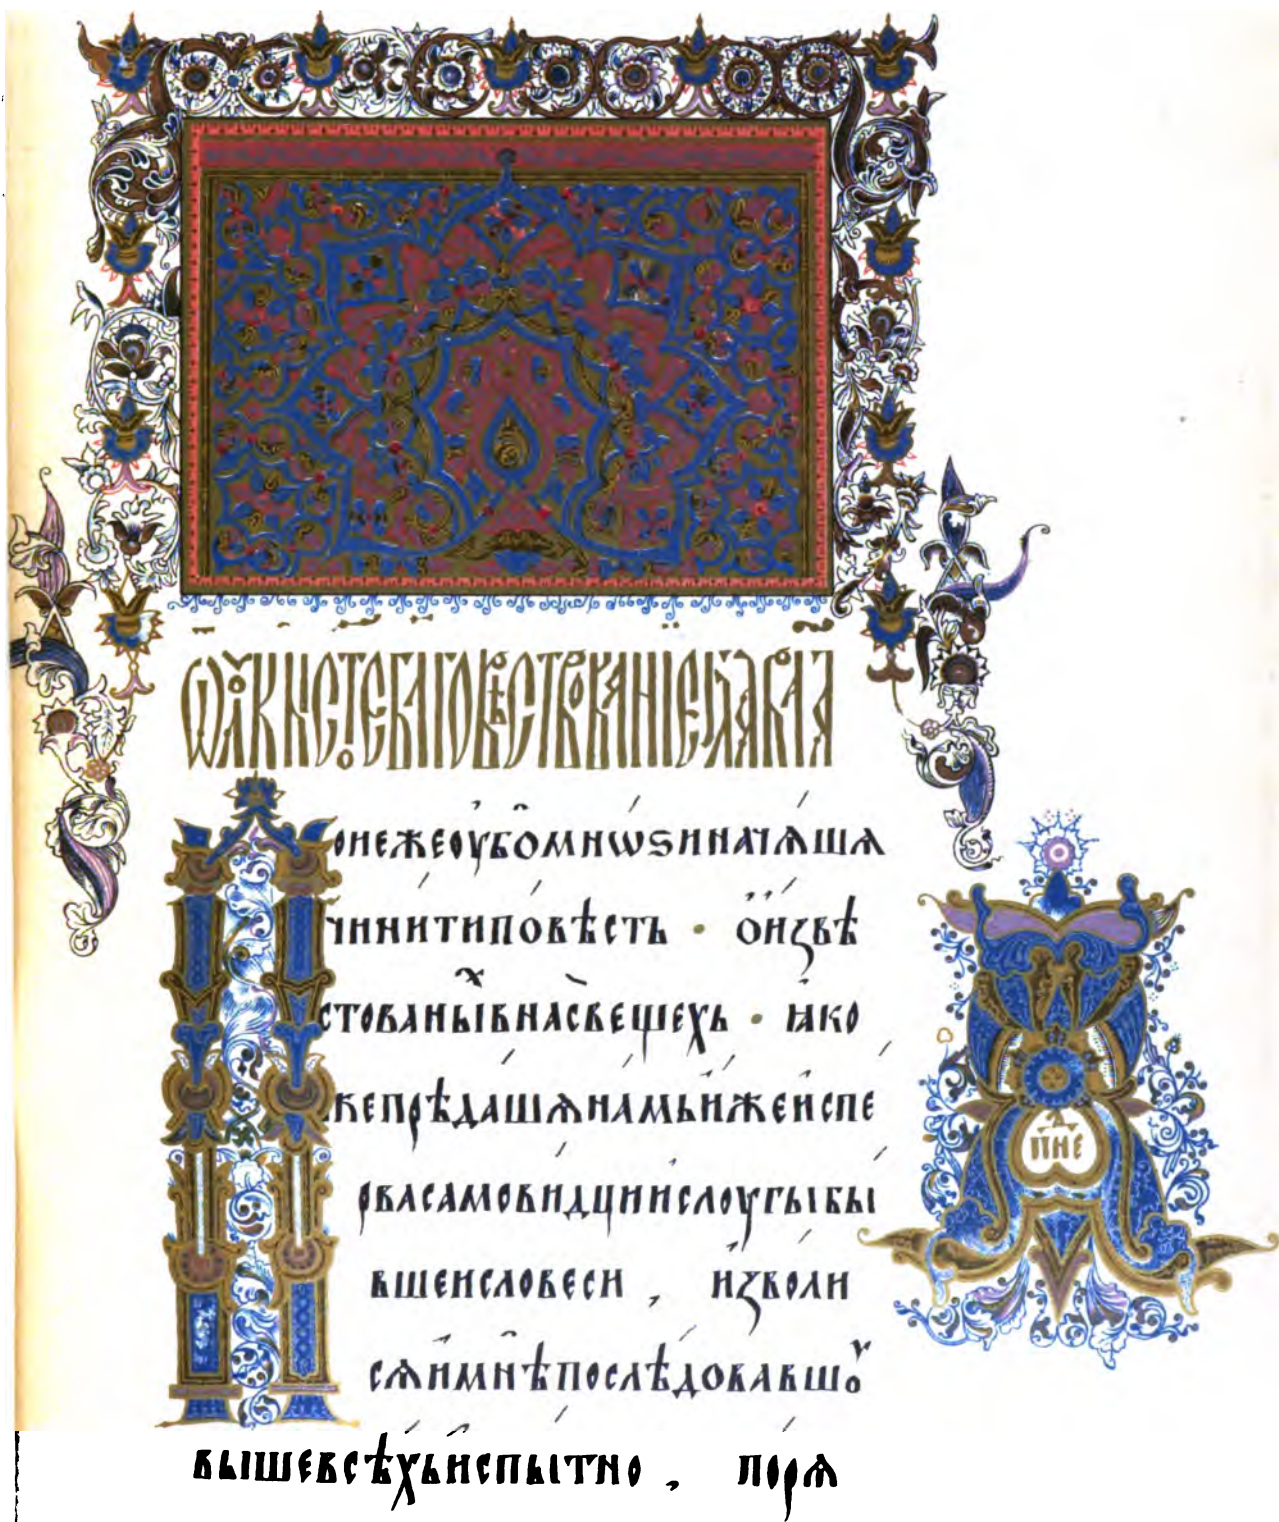 ѿ лꙋкы ст҃ое бл҃говѣствованїе глава а҃
Понежеоу҆бо мнѡѕи начѧ́шѧ
чини́ти по́вѣсть · о҆ и҆звѣ
стованыⷯ в насъ вещехь · ꙗко
же прѣда́шѧ на́мь и҆́же и҆спе
рва самови́дци и҆ слоугы́ бы
вшеи словеси , и҆зво́ли
сѧ и҆ мнѣ послѣ́довавшꙋ
выше всѣ́хь и҆спы́тно , по рѧ́
з҃ пⷣне